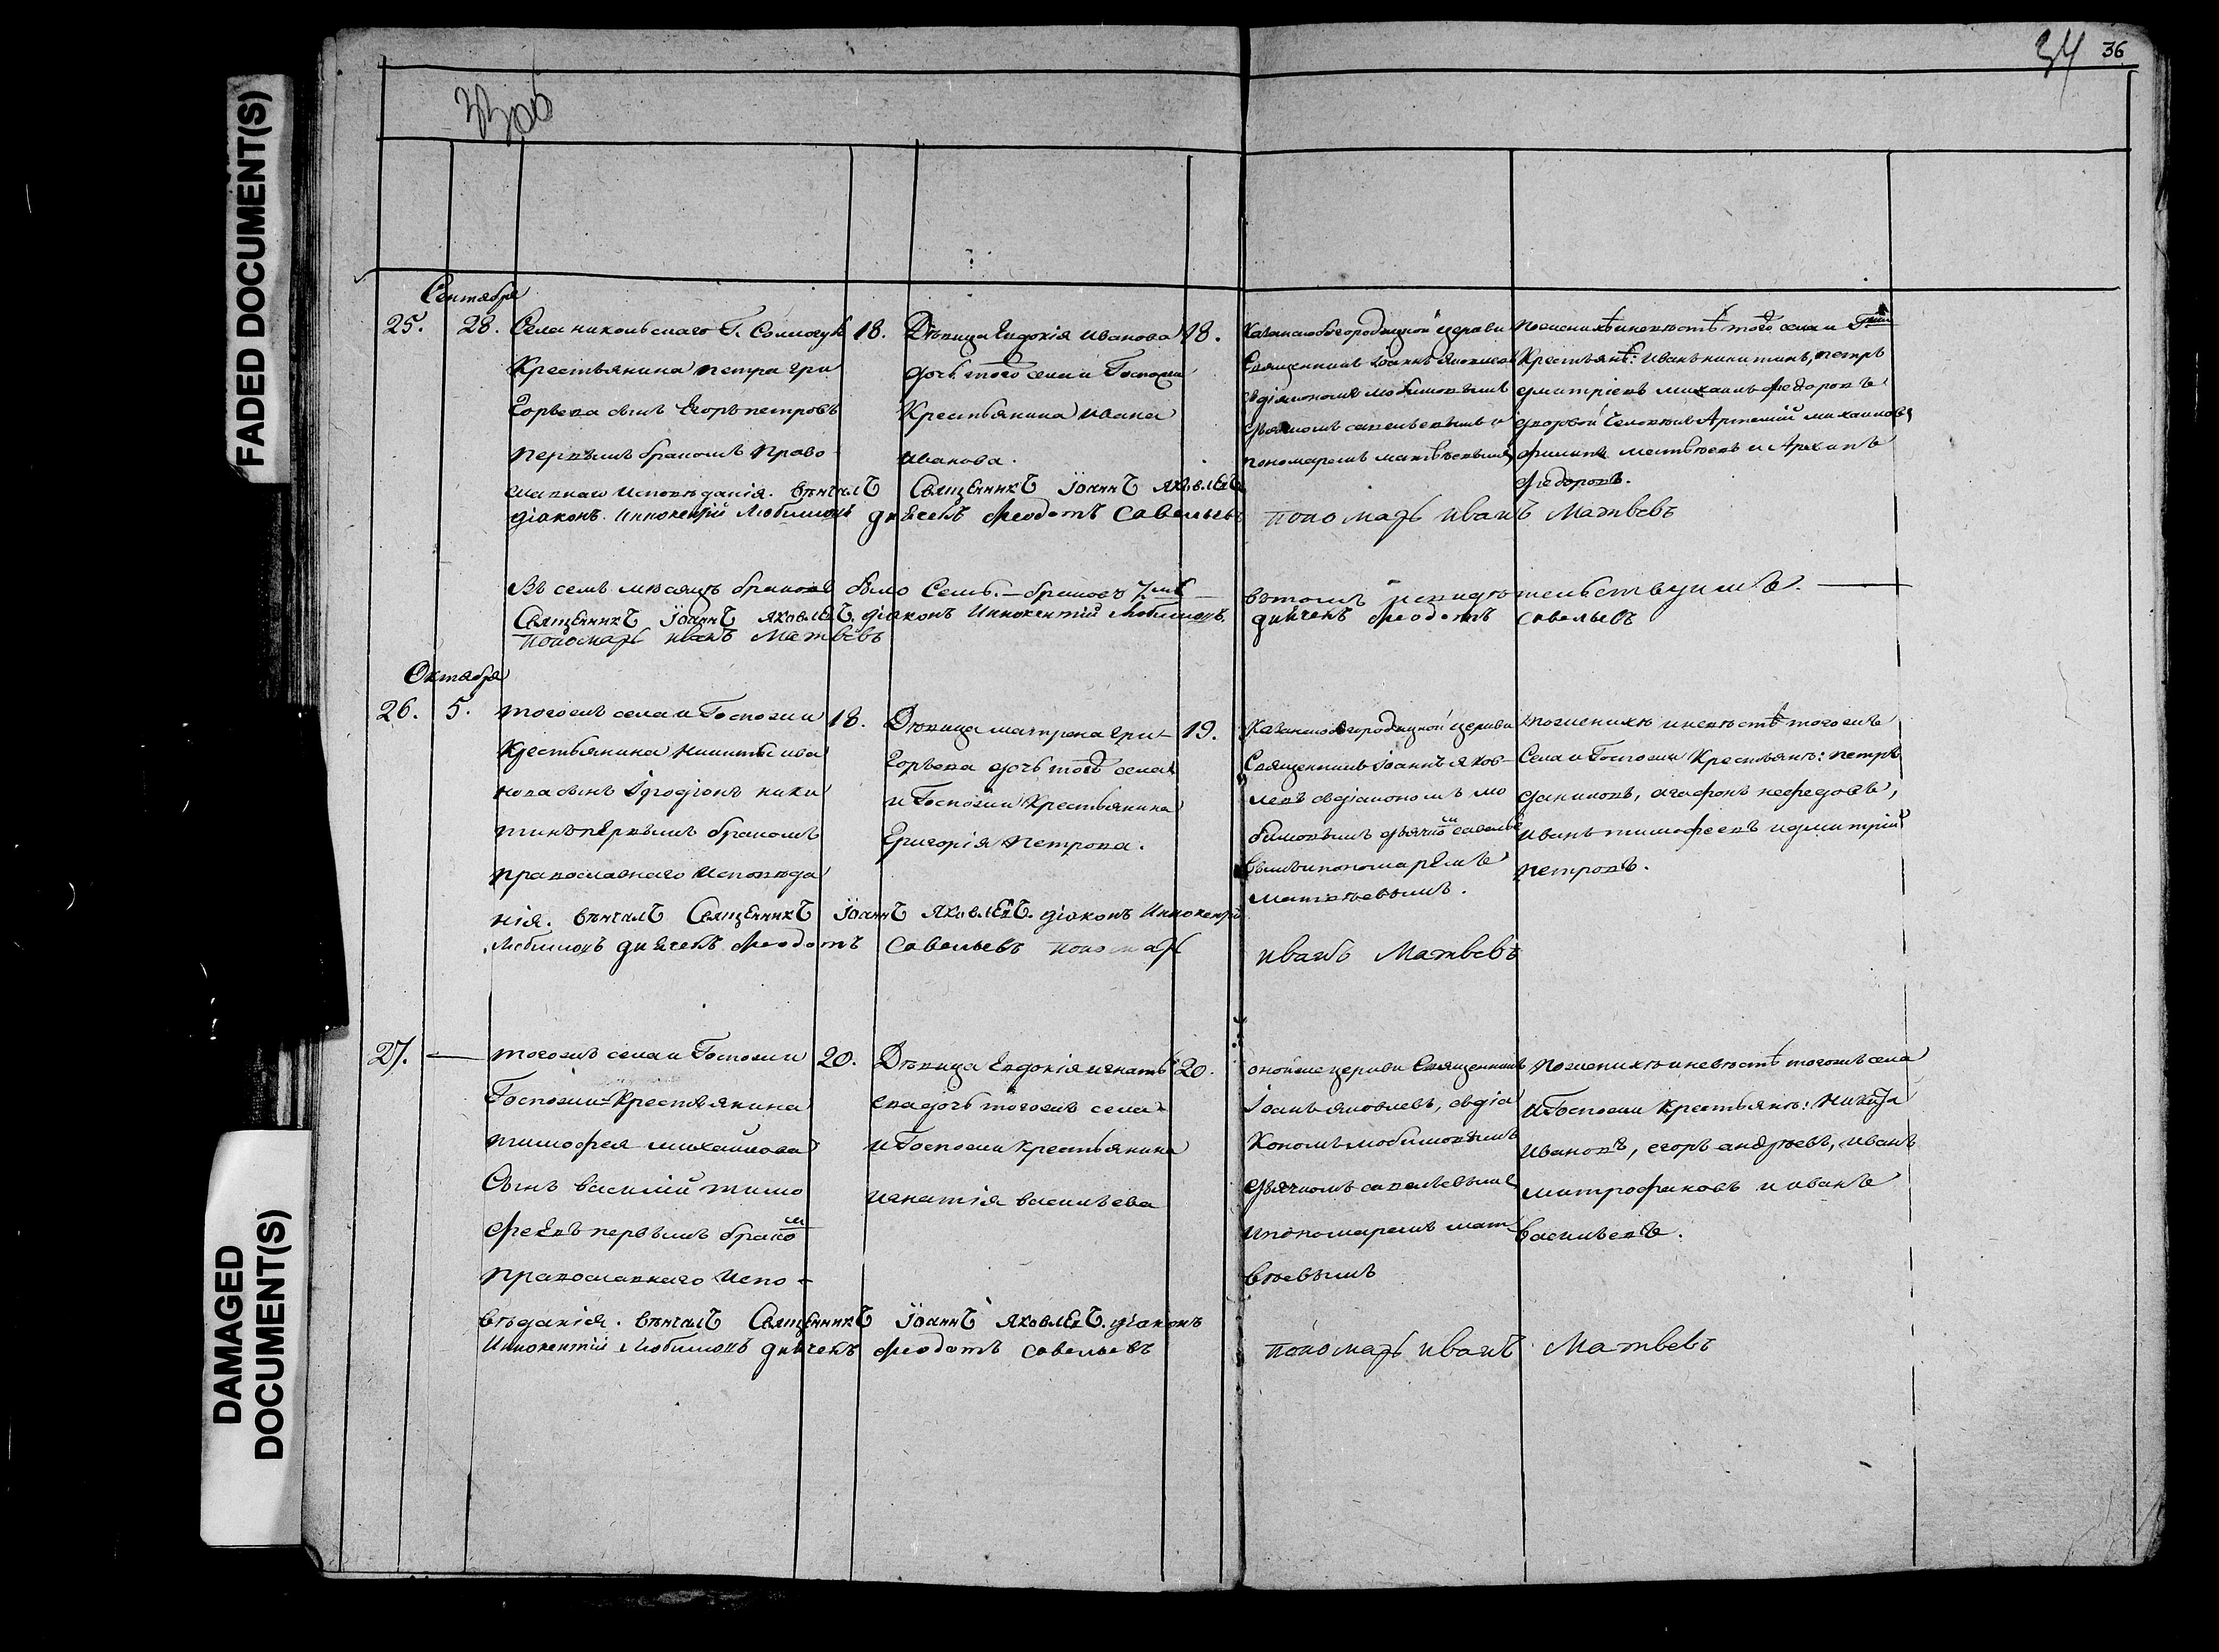 FADED DOCUMENT(S)
DAMAGED
DOCUMENT(S)
34 36
Сентября
25. 28. Села никольскаго Г.
Крестьянина петра гри
горьева сынъ Егоръ петровъ
первымъ бракомъ право
славнаго исповѣданія. вѣнчалъ Священникъ Iоаннъ Яковлевъ
діаконъ Иннокентій Любимовъ дьячекъ Феодотъ Савельевъ пономарь иванъ Матвѣевъ
18.
Дѣвица Евдокія иванова
дочь того села и Госпожи
Крестьянина ивана
иванова.
18.
Казанскобогородицкой церкви
Священникъ Iоаннъ Яковлевъ
съ діакономъ любимовымъ
дьячкомъ савельевымъ и
пономаремъ матвѣевымъ
по женихѣ и невѣстѣ того села и Гжи
Крестьянѣ: иванъ никитинъ, петръ
дмитріевъ михаилъ федоровъ
дворовой человѣкъ Артемій михаиловъ
филипъ матвѣевъ и Архипъ
федоровъ.
Въ семъ мѣсяцѣ браковъ было Семь. — браковъ 7мь — въ томъ свидѣтельствуемъ. —
Священникъ Iоаннъ Яковлевъ. діаконъ Иннокентій Любимовъ. дьячекъ Феодотъ савельевъ
пономарь иванъ Матвѣевъ
Октября
26. 5. тогожъ села и Госпожи
Крестьянина Никиты ива
нова сынъ Iродіонъ ники
тинъ первымъ бракомъ
православнаго исповѣда
нія. вѣнчалъ Священникъ Iоаннъ Яковлевъ. діаконъ Иннокентій
Любимовъ дьячекъ Феодотъ Савельевъ пономарь иванъ Матвѣевъ
18.
Дѣвица матрена гри-
горьева дочь того села
и Госпожи Крестьянина
Григорія петрова.
19.
Казанскобогородицкой церкви
Священникъ Iоаннъ яков-
левъ съ діакономъ лю
бимовымъ дьячком савелье
вымъ и пономаремъ
матвѣевымъ.
по женихѣ и невѣстѣ тогожъ
Села и Госпожи Крестьянѣ: петръ
даниловъ, агафонъ нефедовъ,
иванъ тимофеевъ и дмитрій
петровъ.
27. — тогожъ села и Госпожи
Госпожи Крестьянина
тимофея михайлова
Сынъ василій тимо
феевъ первымъ браком
православнаго испо-
вѣданія. вѣнчалъ Священникъ Iоаннъ Яковлевъ. діаконъ
Иннокентій Любимовъ дьячекъ Феодотъ Савельевъ пономарь иванъ Матвѣевъ
20.
Дѣвица Евдокія игнать
ева дочь тогожъ села
и Госпожи Крестьянина
игнатія васильева
20.
оной же церкви Священникъ
Iоаннъ яковлевъ, съ діа
кономъ любимовымъ
дьячкомъ савельевымъ
и пономаремъ мат
вѣевымъ
по женихѣ и невѣстѣ тогожъ села
и Госпожи Крестьянѣ: Никита
ивановъ, егоръ андреевъ, иванъ
митрофановъ и иванъ
васильевъ.